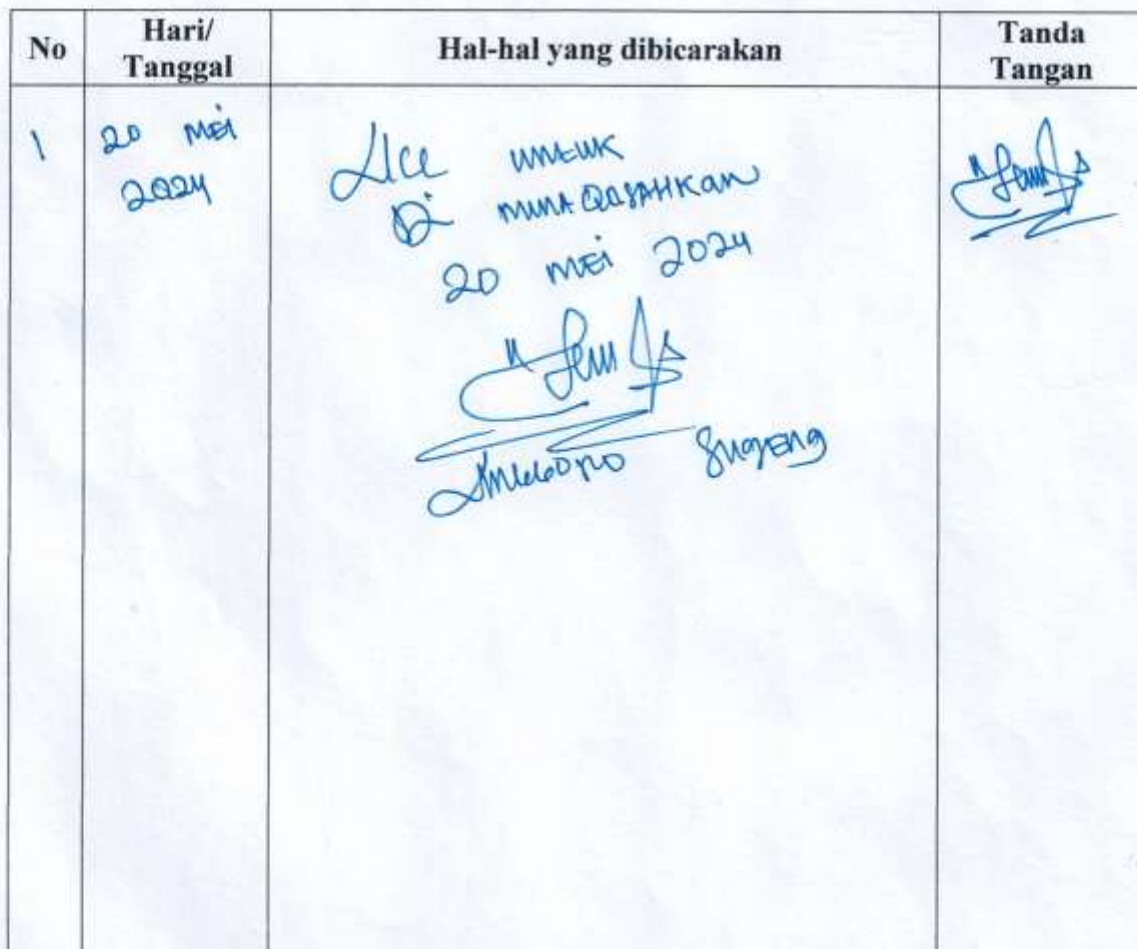 No
Hari/
Tanggal
Hal-hal yang dibicarakan
Tanda
Tangan
1
20 Mei
2024
Acc untuk
Di munaqasahkan
20 Mei 2024
Sugeng